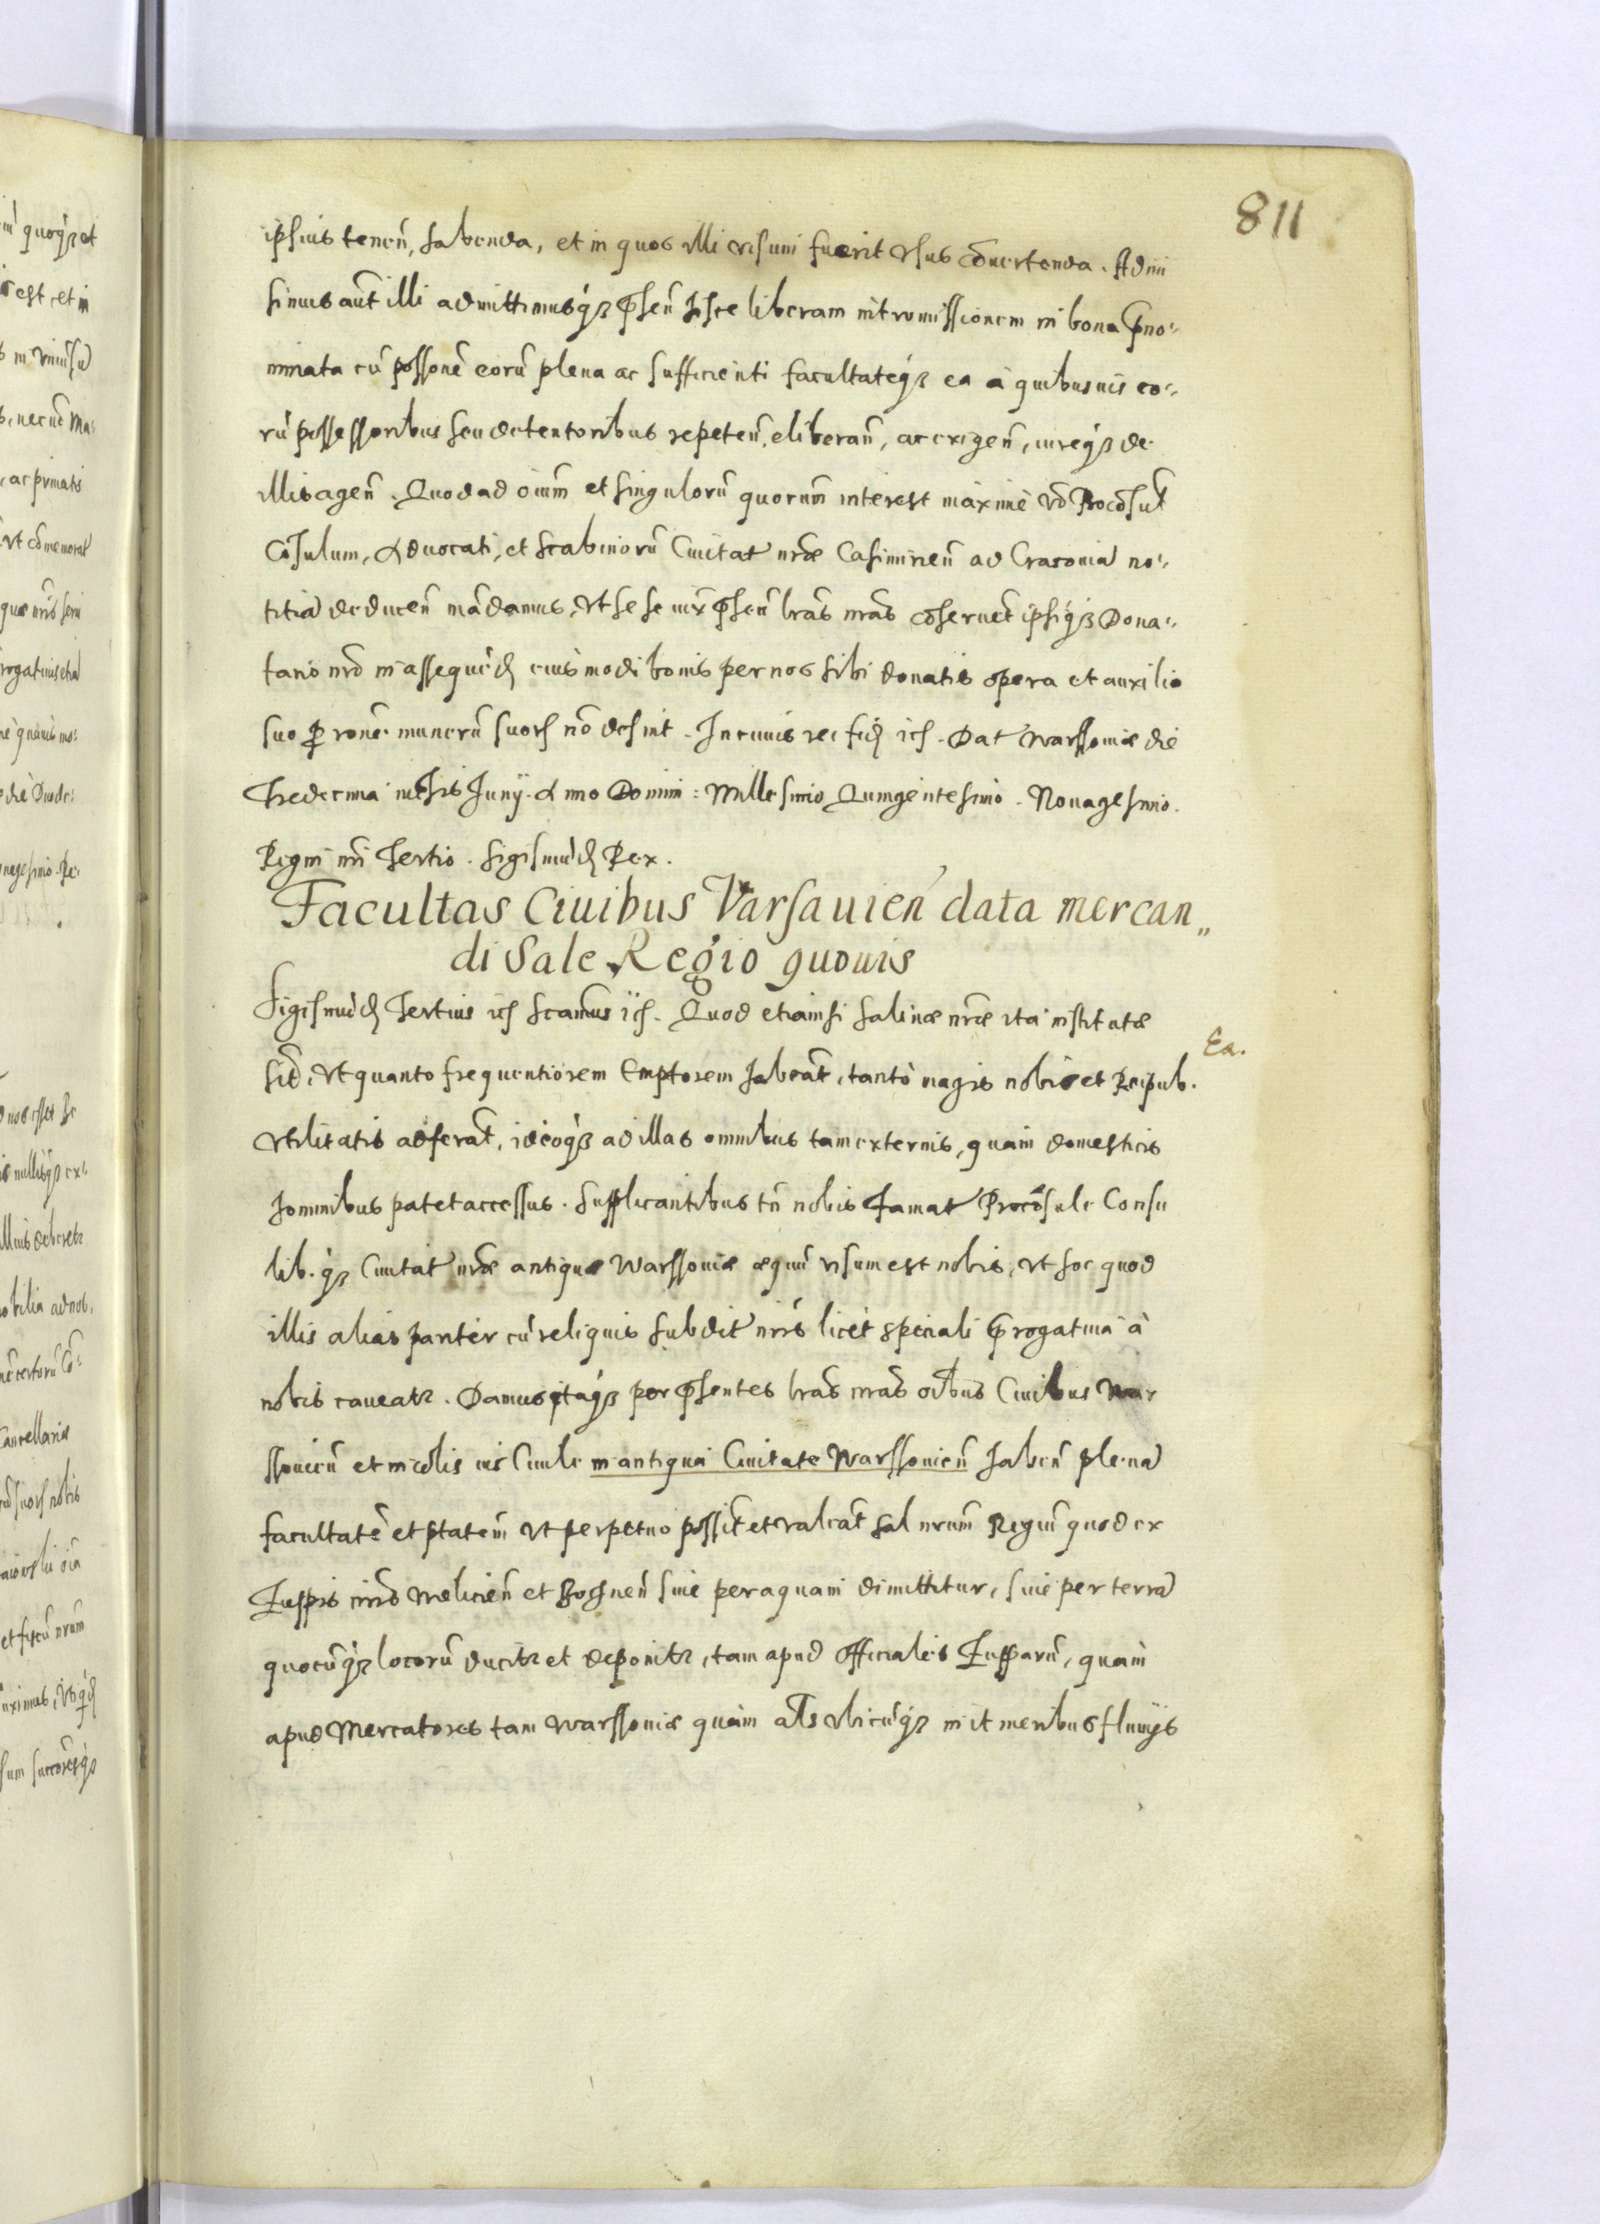 811
ipsius tenen, habenda, et in quos illi visum fuerit usus conuertenda. Admi
simus aut illi admittimusq3 psen hisce liberam intromissionem in bona pno-
minata cu possone eoru plena ac sufficienti facultateq3 ea a quibusuis eo-
ru possessoribus seu detentoribus repeten, eliberan, ac exigen, iureq3 de
illis agen. Quod ad oium et singuloru quorum interest maxime vo Procosul
Cosulum, Aduocati, et Scabinoru Ciuitat nrae Casimirien ad Cracouia no-
titia deducen madamus, vt sese iux psen lras nras coseruet ipsiq3 Dona-
tario nro in assequed eiusmodi bonis per nos sibi donatis opera et auxilio
suo p rone muneru suor no desint. In cuius rei fid ic. Dat Warssouiae die
Tredecima mesis Junij. Anno Domini: Millesimo Quingentesimo. Nonagesimo.
Regni nri Tertio. Sigismud Rex.
Facultas Ciuibus Varsauien data mercan„
di Sale Regio quouis
Sigismud Tertius ic Scamus ic. Quod etiamsi Salinae nrae ita institutae
Ea.
sit, vt quanto frequentiorem Emptorem habeat, tanto magis nobis et Reipub.
vtilitatis adferat, ideoq3 ad illas omnibus tam externis, quam domesticis
hominibus patet accessus. Supplicantibus tn nobis Famat Procosule Consu
lib. q3 Ciuitat nrae antiquae Warssouiae aequu visum est nobis, vt hoc quod
illis alias pariter cu reliquis subdit nris licet speciali progatiua a
nobis caueat. Damus itaq3 per psentes lras nras oibus Ciuibus War
ssouien et incolis ius Ciuile in antiqua Ciuitate Warssouien haben plena
facultate et ptatem vt perpetuo possit et valeat sal nrum Regiu quod ex
Zuppis nris Vielicien et Bochnen siue per aquam dimittitur, siue per terra
quocuq3 locoru ducit et deponit, tam apud Officiales Zupparu, quam
apud Mercatores tam Warssouiae quam als vbicuq3 in itineribus fluuijs